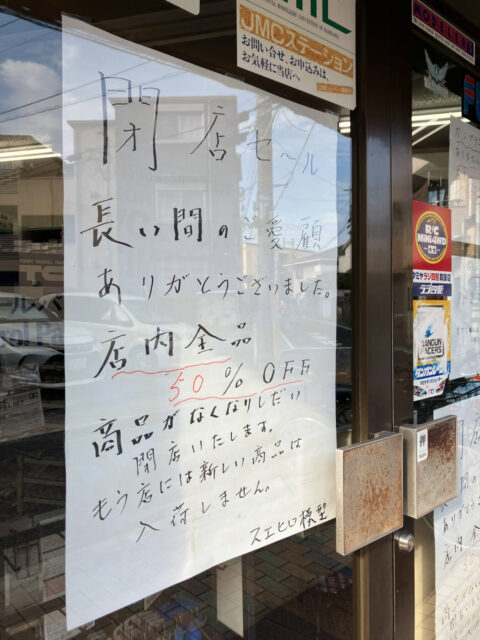 JMCステーション
お問い合せ、お申込みは、
お気軽に当店へ
閉店セール
長い間のご愛顧
ありがとうございました。
店内全品
50%OFF
商品がなくなりしだい
閉店いたします。
もう店には新しい商品は
入荷しません。
スエヒロ模型
R/C
MINI4WD
タミヤラジ四駆取扱店
ラジ四駆
DANGUN
RACERS
押